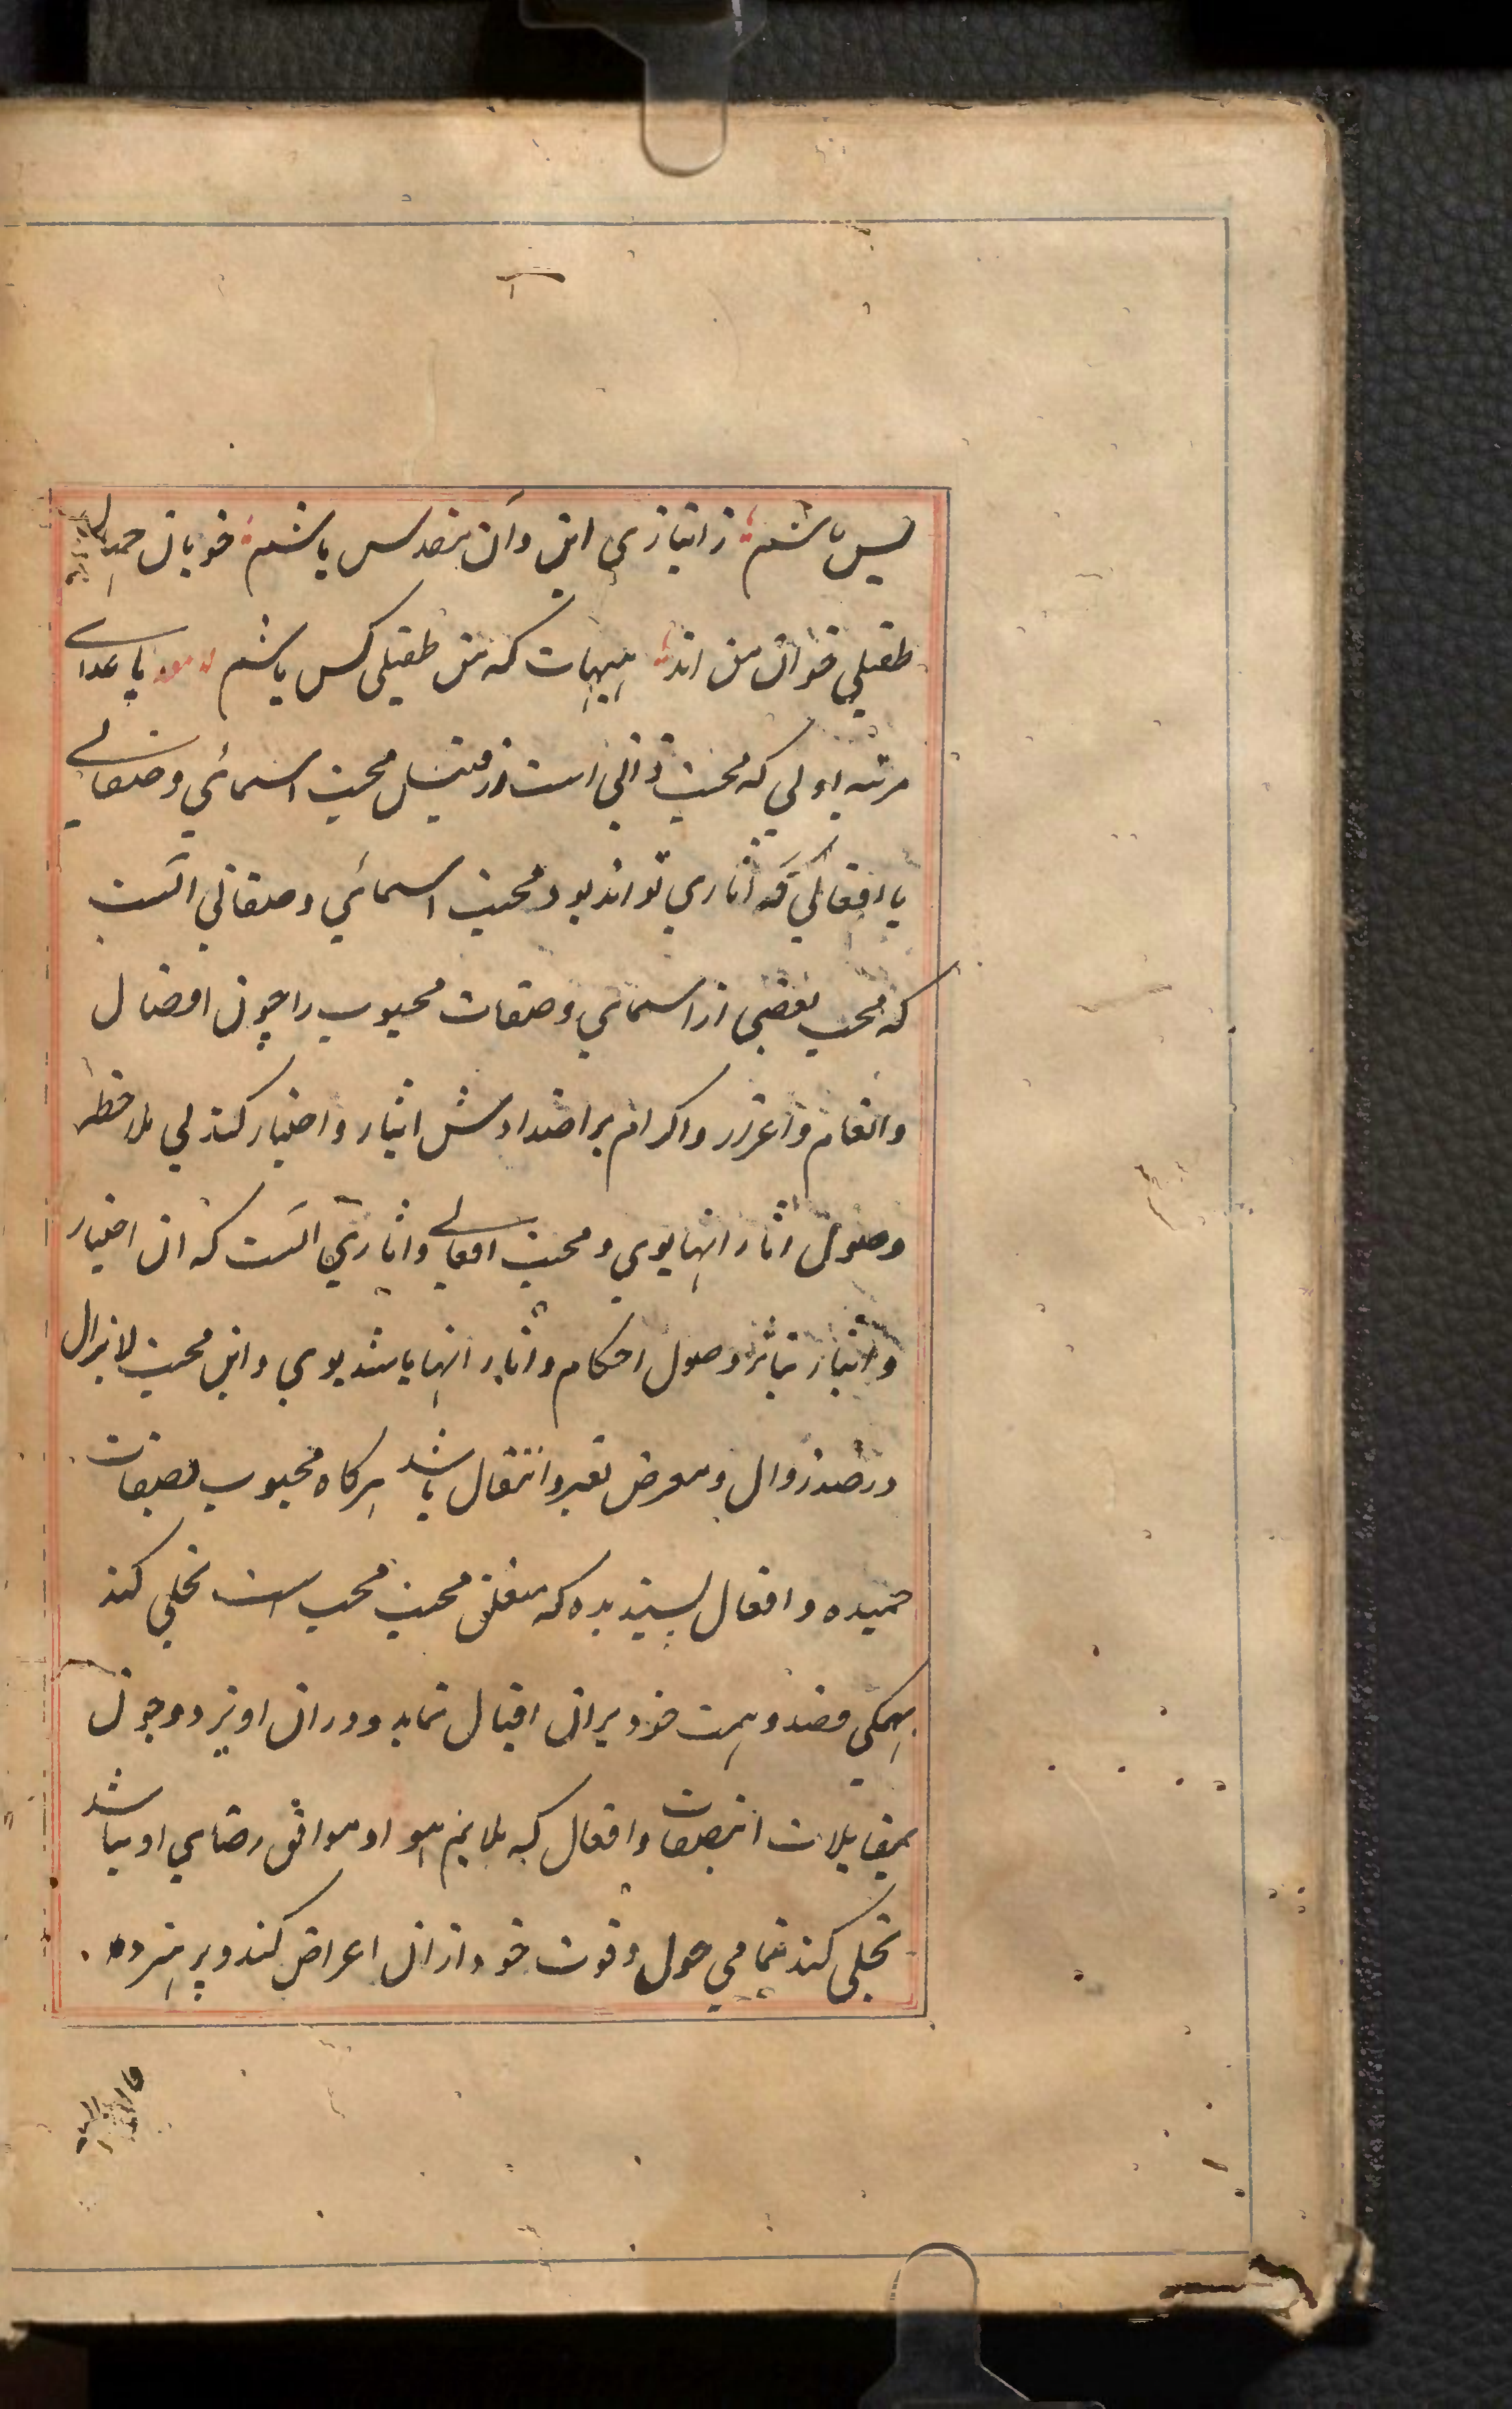 پس باشم ز انبازی این و آن مقدس باشم خوبان جهان
طفیلی خوان من اند هیهات که من طفیلی کس باشم و ماعدای
مرتبه اولی که محبت ذاتی است از قبیل محبت اسمائی و صفاتی
یا افعالی و آثاری تواند بود محبت اسمائی و صفاتی آنست
که محب بعضی از اسمای و صفات محبوب را چون افضال
وانعام و اعزاز و اکرام بر اضدادش ایثار و اختیار کند بی ملاحظه
وصول اثار انها بوی و محبت افعالی و اثاری آنست که ان اختیار
و ایثار بنابر وصول احکام و اثار انها باشد بوی و این محبت لایزال
در صدد زوال و معرض تغیر و انتقال باشد هرکاه محبوب بصفات
حمیده و افعال پسندیده که متعلق محبت محب است تجلی کند
بهمکی قصد و همت خود بران اقبال نماید و در ان اویزد و چون
بمقابلات این صفات و افعال که ملایم هوا و موافق رضای او نباشد
تجلی کند تمامی حول و قوت خود از ان اعراض کند و بپرهیزد